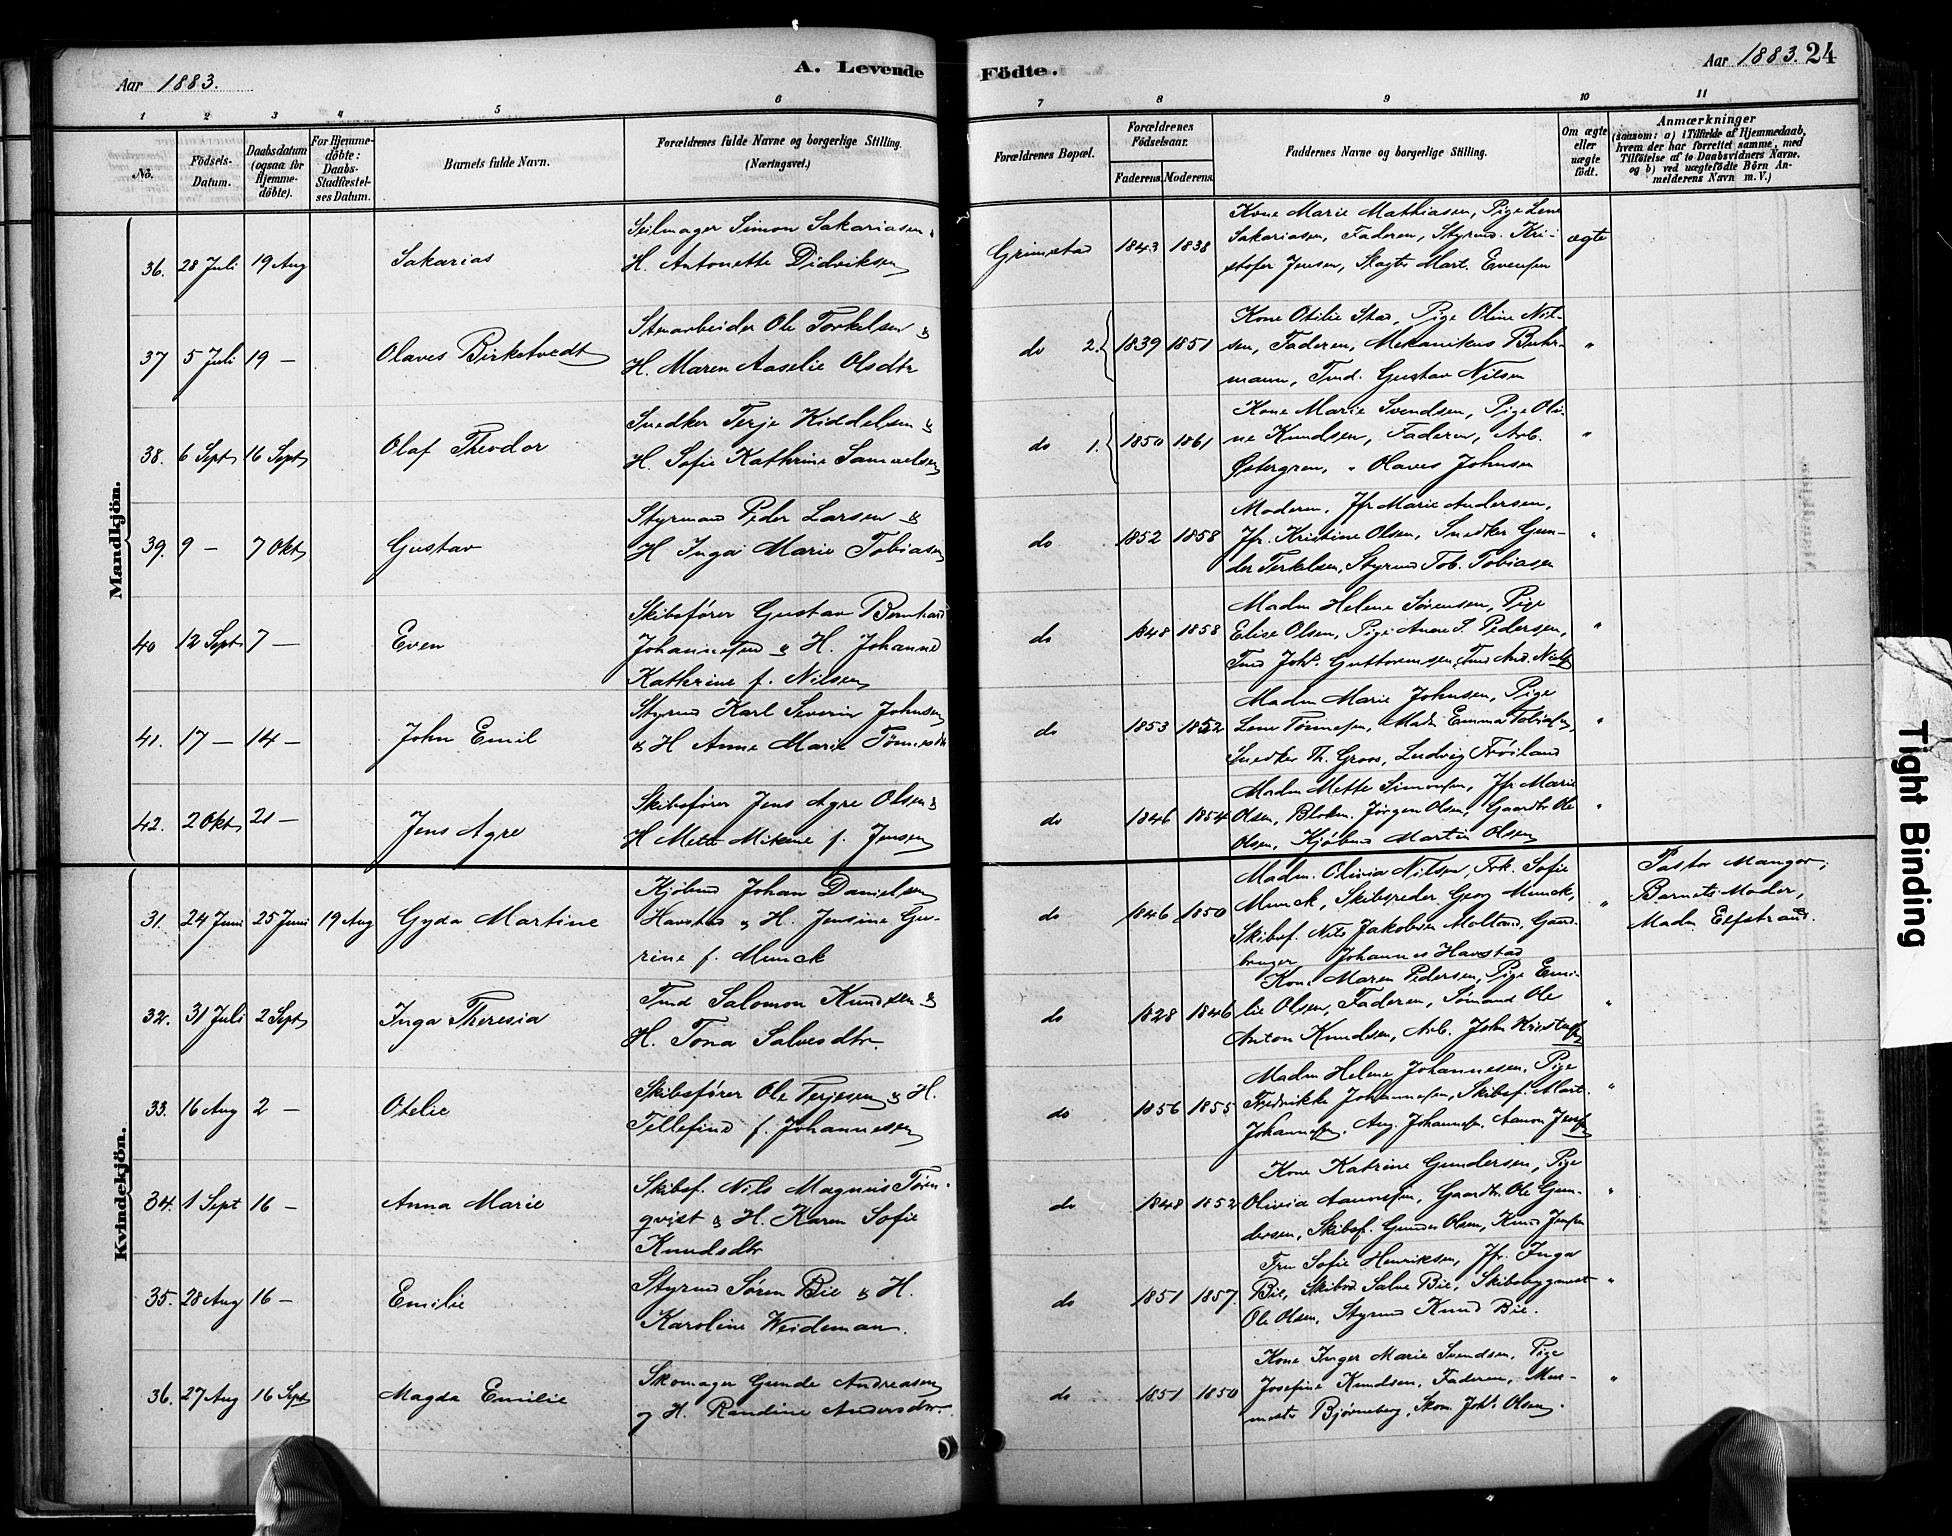 Aar 1883.
A. Levende Födte.
Aar 1883. 24
1 2 3 4 5 6 7 8 9 10 11
No.
Födsels-Datum.
Daabsdatum (ogsaa for Hjemmedöbte).
For Hjemmedöbte: Daabs-Stadfæstelses Datum.
Barnets fulde Navn.
Forældrenes fulde Navne og borgerlige Stilling.
(Næringsvei.)
Forældrenes Bopæl.
Forældrenes Födselsaar.
Faderens. Moderens.
Faddernes Navne og borgerlige Stilling.
Om ægte eller uægte födt.
Anmærkninger
(saasom: a) i Tilfælde af Hjemmedaab, hvem der har forrettet samme, med Tilföielse af to Daabsvidners Navne. og b) ved uægtefödte Börn Anmelderens Navn m. V.)
Mandkjön.
36. 28 Juli 19 Aug Sakarias
Seilmager Simon Sakariasen &
H. Antonette Didriksen
Grimstad 1843 1838
Kone Marie Mathiasen, Pige Lene
Sakariasen, Faderen, Styrmd. Kri-
stofer Jensen, Slagter Mart. Evensen
ægte
37 5 Juli 19 — Olaves Birketvedt
Stenarbeider Ole Torkelsen &
H. Maren Aaselie Olsdtr
do 2. 1839 1851
Kone Otilie Stas, Pige Oline Nil-
sen, Faderen, Mekanikus Buhr-
mann, Tmd. Gustav Nilsen
"
38. 6 Sept 16 Sept Olaf Theodor
Snedker Terje Kiddelsen &
H. Sofie Kathrine Samuelsen
do 1. 1850 1861
Kone Marie Svendsen, Pige Oli-
ne Knudsen, Faderen, Arb.
Østergren, " Olaves Johnsen
"
39. 9 — 7 Okt Gustav
Styrmand Peder Larsen &
H Inga Marie Tobiasen
do 1852 1858
Moderen, Jfr Marie Andersen,
Jfr. Kristine Olsen, Snedker Gun-
der Terkelsen, Styrmd Tob. Tobiasen
"
40 12 Sept 7 — Even
Skibsfører Gustav Bernhard
Johannesen & H. Johanne
Kathrine f. Nilsen
do 1848 1858
Madm Helene Sørensen, Pige
Elise Olsen, Pige Anne S. Pedersen,
Tmd Johs. Guttormsen, Tmd And. Niels
"
41. 17 — 14 — John Emil
Styrmd Karl Severin Johnsen
& H Anne Marie Tønnesdtr
do 1853 1852
Madm Marie Johnsen, Pige
Lene Tønnesen, Madm Emma Tobiasen,
Snedker Th. Groos, Ludvig Frøiland
"
42. 2 Okt 21 — Jens Agre
Skibsfører Jens Agre Olsen &
H Mette Mikane f. Jensen
do 1846 1854
Madm Mette Simonsen, Jfr Marie
Olsen, Blokm. Jörgen Olsen, Gaardbr Ole
Olsen, Kjøbmd Martin Olsen
"
Kvindekjön.
31. 24 Juni 25 Juni 19 Aug Gyda Martine
Kjøbmd Johan Danielsen
Havstad & H. Jensine Gu-
rine f. Munck
do 1846 1850
Madm. Olivia Nilsen, Frk. Sofie
Munck, Skibsreder Georg Munck,
Skibsf. Nils Jakobsen Molland, Gaard-
bruger Johannes Havstad
"
Pastor Mangor,
Barnets Moder,
Madm Elfstrand.
32. 31 Juli 2 Sept Inga Theresia
Tmd Salomon Knudsen &
H. Tona Salvesdtr.
do 1828 1846
Kone Maren Pedersen, Pige Emi-
lie Olsen, Faderen, Sømand Ole
Anton Knudsen, Arb. John Kristensen
"
33. 16 Aug 2 — Otelie
Skibsfører Ole Terjesen & H.
Tellefine f. Johannesen
do 1856 1855
Madm Helene Johannesen, Pige
Fredrikke Johannesen, Skibsf. Mart.
Johannesen, Aug. Johannesen, Aanon Jensen
"
34. 1 Sept 16 — Anna Marie
Skibsf. Nils Magnus Törn-
qvist & H. Karen Sofie
Knudsdtr
do 1848 1852
Kone Katrine Gundersen, Pige
Olivia Aanonsen, Gaardbr Ole Gun-
dersen, Skibsf. Gunder Olsen, Knud Jensen
"
35. 28 Aug 16 — Emilie
Styrmd Søren Bie & H.
Karoline Weideman.
do 1851 1857.
Fru Sofie Henriksen, Jfr. Inga
Bie, Skibsrd Salve Bie, Skibsbygmest
Ole Olsen, Styrmd Knud Bie.
"
36. 27 Aug 16 Sept Magda Emilie
Skomager Gunde Andreasen
og H. Randine Andersdtr.
do 1851 1850
Kone Inger Marie Svendsen, Pige
Josefine Knudsen, Faderen, Mur-
mester Bjørneberg, Skom. Johs. Olsen.
"
Tight Binding